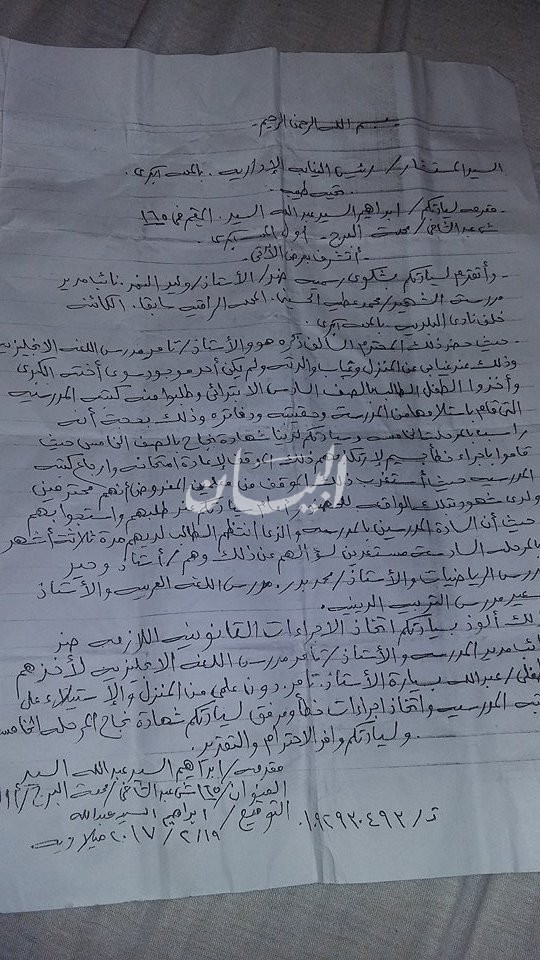 بسم الله الرحمن الرحيم -
السيد المستشار / رئيس النيابه الإداريه. بالمحله الكبرى.
تحيه طيبه -
- مقدمه لسيادتكم / ابراهيم السيد عبدالله السيد. المقيم في ١٦٥
ش عبد الشافى / محلة البرج - أول المحله الكبرى.
- أتشرف بعرض الآتى -
- وأتقدم لسيادتكم بشكوى رسميه ضد / الأستاذ / وليد النمر. نائبا مدير
مدرسة الشهيد / محمد عطيه الحسينى. المحله الراقيه سابقا. الكائنه
خلف نادى البلديه بالمحله الكبرى.
- حيث حضر ذلك المحترم السالف ذكره هو والأستاذ / تامر مدرس اللغه الانجليزيه
وذلك عند غيابى عن المنزل وغياب والدته ولم يكن أحد موجود سوى أخته الكبرى
وأخذوا الطفل الطالب بالصف السادس الابتدائى وطلبوا منه كتبه المدرسيه
التى قام باستلامها من المدرسه وحقيبته ودفاتره وذلك بحجة أنه
راسب بالمرحله الخامسه وسيادتكم لدينا شهادة نجاح بالصف الخامس حيث
قاموا باجراء خطأ جسيم لارتكابهم ذلك الموقف لإعادة امتحانه وارجاع كتبه
المدرسيه حيث أستغرب ذلك الموقف من معلمين المفروض أنهم محترمين
ولدى شهود بتلك الواقعه سيادتكم طلبهم واستجوابهم
حيث أن السادة المدرسين بالمدرسه والذى أنتظم الطالب لديهم مدة ثلاثة أشهر
بالمرحله السادسه مستعدين لسؤالهم عن ذلك وهم / أستاذ وحيد
مدرس الرياضيات والأستاذ / محمد بدر. مدرس اللغه العربيه والأستاذ
سعيد مدرس التربيه الدينيه.
لذلك ألوذ بسيادتكم اتخاذ الاجراءات القانونيه اللازمه ضد
نائبا مدير المدرسه والأستاذ / تامر مدرس اللغه الانجليزيه لأخذهم
طفلى / عبدالله بسيارة الأستاذ تامر. دون علمى من المنزل والإستيلاء على
كتبه المدرسيه واتخاذ اجراءات خطأ ومرفق لسيادتكم شهادة نجاح المرحله الخامسه
ولسيادتكم وافر الاحترام والتقدير.
مقدمه / ابراهيم السيد عبدالله السيد
العنوان / ١٦٥ ش عبد الشافى / محلة البرج / أول
التوقيع / ابراهيم السيد عبدالله
ت / ٠١٠٩٢٩٣٠٤٩٣
٢٠١٧/٢/١٩ ميلاديه
البيان